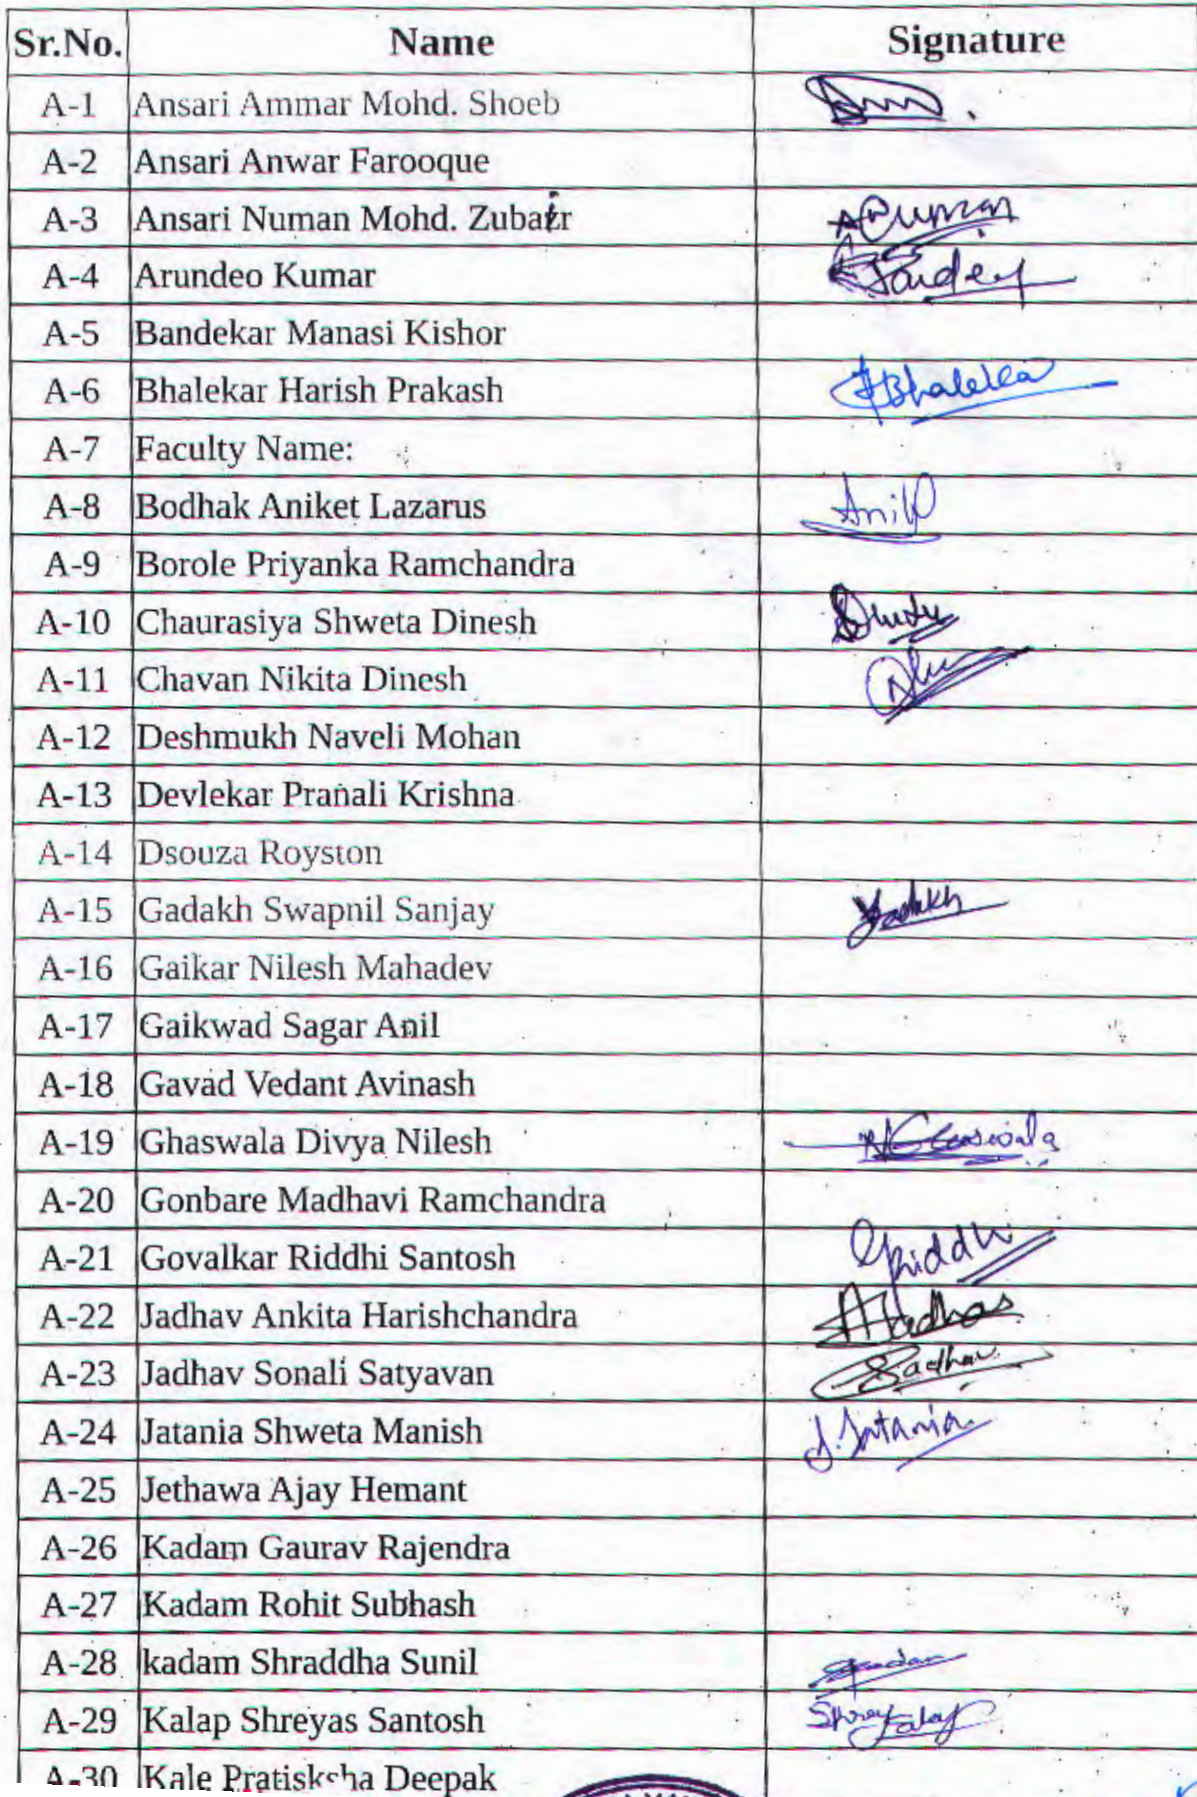 Sr.No. Name Signature
A-1 Ansari Ammar Mohd. Shoeb
A-2 Ansari Anwar Farooque
A-3 Ansari Numan Mohd. Zubair
A-4 Arundeo Kumar Pandey
A-5 Bandekar Manasi Kishor
A-6 Bhalekar Harish Prakash
A-7 Faculty Name:
A-8 Bodhak Aniket Lazarus
A-9 Borole Priyanka Ramchandra
A-10 Chaurasiya Shweta Dinesh
A-11 Chavan Nikita Dinesh
A-12 Deshmukh Naveli Mohan
A-13 Devlekar Pranali Krishna
A-14 Dsouza Royston
A-15 Gadakh Swapnil Sanjay Gadakh
A-16 Gaikar Nilesh Mahadev
A-17 Gaikwad Sagar Anil
A-18 Gavad Vedant Avinash
A-19 Ghaswala Divya Nilesh
A-20 Gonbare Madhavi Ramchandra
A-21 Govalkar Riddhi Santosh
A-22 Jadhav Ankita Harishchandra
A-23 Jadhav Sonali Satyavan
A-24 Jatania Shweta Manish J. Jatania
A-25 Jethawa Ajay Hemant
A-26 Kadam Gaurav Rajendra
A-27 Kadam Rohit Subhash
A-28 kadam Shraddha Sunil
A-29 Kalap Shreyas Santosh
A-30 Kale Pratisksha Deepak